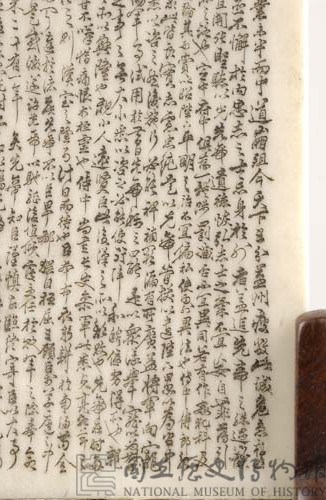 業未半而中道崩殂今天下三分益州疲敝此誠危急存
不懈於內忠志之士忘身於外者蓋追先帝之殊遇
宜開張聖聽以光先帝遺德恢弘志士之氣不宜妄自菲薄引
也宮中府中俱為一體陟罰臧否不宜異同若有作奸犯科及
論其刑賞以昭陛下平明之治不宜偏私使內外異法也侍中侍郎
志慮忠純是以先帝簡拔以遺陛下愚以為宮中
後施行必能裨補闕漏有所廣益將軍向寵
試用於昔日先帝稱之曰能是以眾議舉寵
之事事無大小悉以咨之必能使行陣和睦優劣得所也
以興隆也親小人遠賢臣此後漢之所以傾頹也先帝在時
未嘗不歎息痛恨於桓靈也侍中尚書長史參軍此悉貞
則漢室之隆可計日而待也臣本布衣躬耕於南陽苟全
達於諸侯先帝不以臣卑鄙猥自枉屈三顧臣於
是感激遂許先帝以驅馳後值傾覆受任於敗軍之際奉命
二十有一年矣先帝知臣謹慎故臨崩寄臣以大事
國立歷史博物館
NATIONAL MUSEUM OF HISTORY